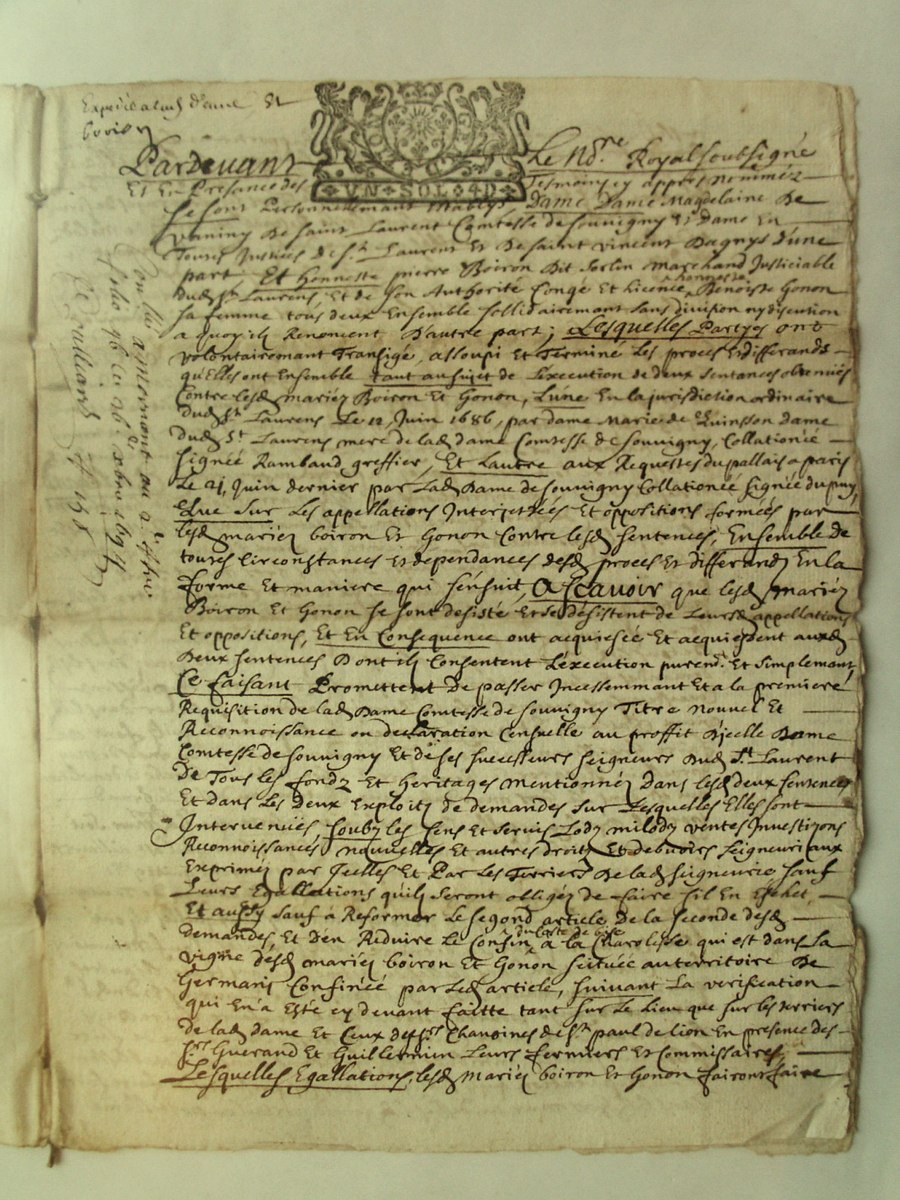 Expedié a lad. dame Et
boiron
VN·SOL·4D·
Pardevant Le No.re Royal soubsigné
Et En Presance des Tesmoins cy appres nommez
se sont Personnellement Dame Dame Magdelaine De
De Saint Laurent Comtesse de Souvigny Et Dame En
Toutes Justices de St. Laurent Et De Saint Vincent Dagnys d'une
part, Et Honneste pierre Boiron Dit Sorlin Marchand Justiciable
dud. St. Laurens, Et de son Authorité Congé Et licence Benoiste Gonon
sa femme tous deux Ensemble sollidairement sans division ny discution
a quoy ils Renoncent D'autre part; Lesquelles Partyes ont
volontairemant Transigé, assoupi Et Terminé Les proces Et differands
qu'Elles ont Ensemble tant au sujet de L'execution de deux sentances obtenües
Contre lesd. mariez Boiron Et Gonon, L'une En la jurisdiction ordinaire
dud. St. Laurens Le 12 Juin 1686, par dame Marie de Quinsson dame
dud. St. Laurens mere de lad. dame Comtesse de Souvigny, Collationée
signée Rambaud greffier, Et Lautre aux Requestes du pallais a paris
Le 21 Juin dernier par Lad. Dame de Souvigny Collationée signée dupuy
Que sur Les appellations Interjettées Et oppositions formées par
lesd. mariez boiron Et Gonon Contre lesd. sentences, Ensemble de
toutes Circonstances Et dependances desd. proces Et differandz En la
forme Et maniere qui s'ensuit, Ascavoir que lesd. mariez
Boiron Et Gonon se sont desisté Et se desistent de Leursd. appellations
Et oppositions, Et En Consequence ont acquiescé Et acquiescent auxd.
Deux sentences Dont ils Consentent L'execution puremt. Et simplemant,
Ce faisant Promettent de passer Incessemmant Et a la premiere
Requisition de lad. Dame Comtesse de Souvigny Titre Nouvel Et
Reconnoissance ou declaration Censuelle au proffit D'icelle Dame
Comtesse de Souvigny Et de ses successeurs seigneurs Dud. St. Laurent
De Tous les fondz Et heritages Mentionnez Dans lesd. deux sentences
Et dans Les deux Exploits de demandes sur Lesquelles Elles sont
Intervenües, soubz les Cens Et servis Lodz milodz ventes Investizons
Reconnoissances nouvelles Et autres droitz Et debvoirs seigneuriaux
Exprimez par Icelles Et Par Les Terriers De lad. seigneurie sauf
Leurs Egallations qu'ils seront obligez de faire sil En Eschet,
Et aussy sauf à Reformer Le segond article de la seconde desd.
demandes, Et d'en Reduire Le Confin du Costé de bise à la Charolisse qui est dans La
vigne desd. mariez boiron Et Gonon scituée au territoire De
Germany Confinée par Led. article, suivant La verification
qui En a Esté cy devant faitte tant sur Le lieu que sur les terriers
de lad. dame Et Ceux des srs. Chanoines de St. paul de lion En presence des
srs. Guerand Et Guillermin Leurs fermiers Et Commissaires,
Lesquelles Egallations, lesd. Mariez boiron Et Gonon fairont faire